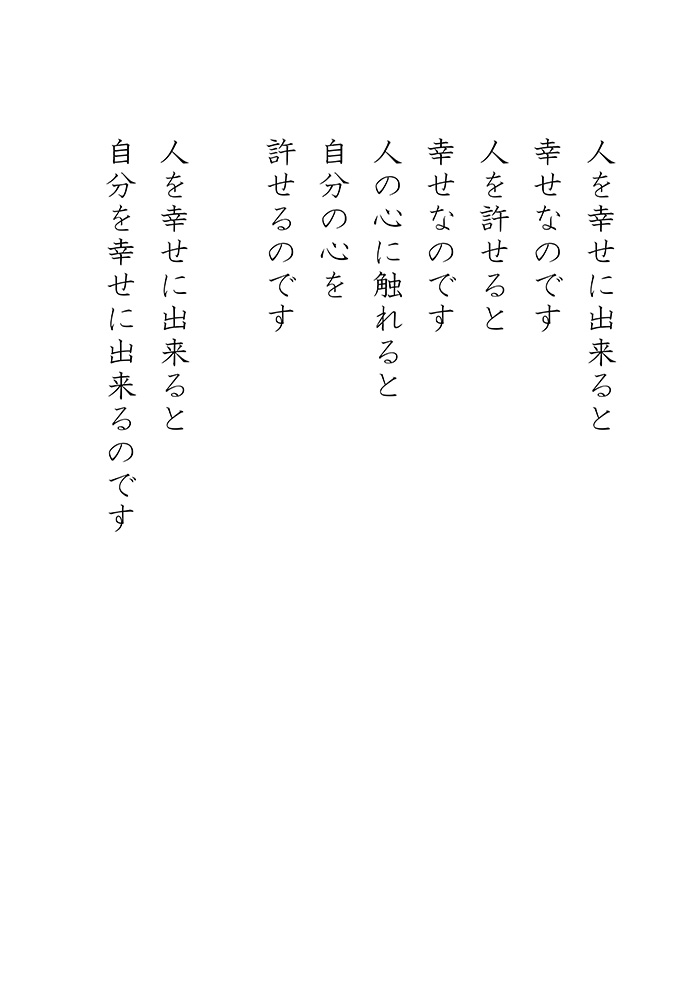 人を幸せに出来ると
幸せなのです
人を許せると
幸せなのです
人の心に触れると
自分の心を
許せるのです
人を幸せに出来ると
自分を幸せに出来るのです